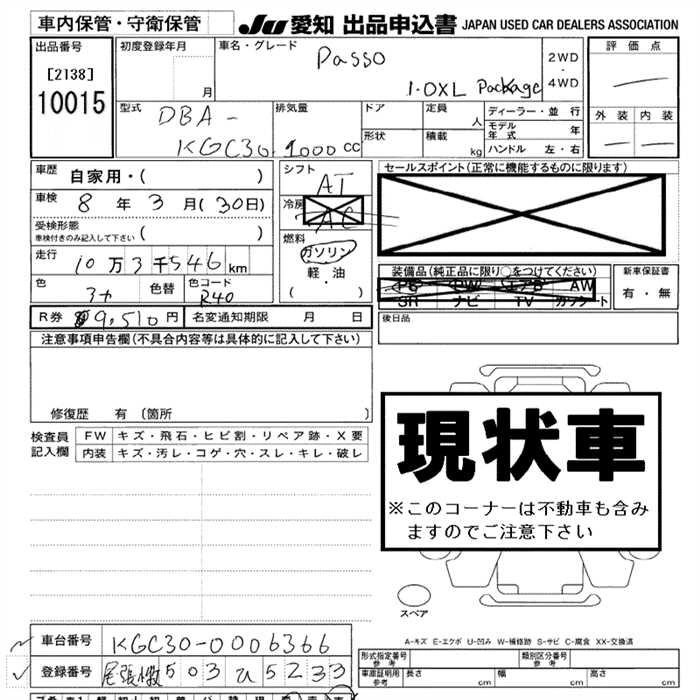 車内保管・守衛保管
JU 愛知 出品申込書 JAPAN USED CAR DEALERS ASSOCIATION
出品番号
[2138]
10015
初度登録年月
月
車名・グレード
Passo
1.0XL Package
2WD
・
4WD
評価点
外装 内装
型式
DBA-
KGC30
排気量
1000 cc
ドア
形状
定員
人
積載
kg
ディーラー・並行
モデル年式 年
ハンドル 左・右
車歴
自家用・( )
車検
8年3月(30日)
受検形態
車検付きのみ記入して下さい ( )
走行
10万3千546km
色
色替
色コード
R40
シフト
AT
冷房
AC
燃料
ガソリン
軽・油
( )
セールスポイント(正常に機能するものに限ります)
装備品(純正品に限り○をつけてください)
PS PW エアB AW
SR ナビ TV カワシート
新車保証書
有・無
R券 9,510円
名変通知期限 月 日
後日品
注意事項申告欄(不具合内容等は具体的に記入して下さい)
修復歴 有 (箇所 )
検査員
記入欄
FW キズ・飛石・ヒビ割・リペア跡・X要
内装 キズ・汚レ・コゲ・穴・スレ・キレ・破レ
現状車
※このコーナーは不動車も含み
ますのでご注意下さい
スペア
A-キズ E-エクボ U-凹み W-補修跡 S-サビ C-腐食 XX-交換済
車台番号 KGC30-0006366
登録番号 尾張小牧 503 ひ 5233
形式指定番号
参考
類別区分番号
参考
車庫証明用
参考
長さ cm 幅 cm 高さ cm